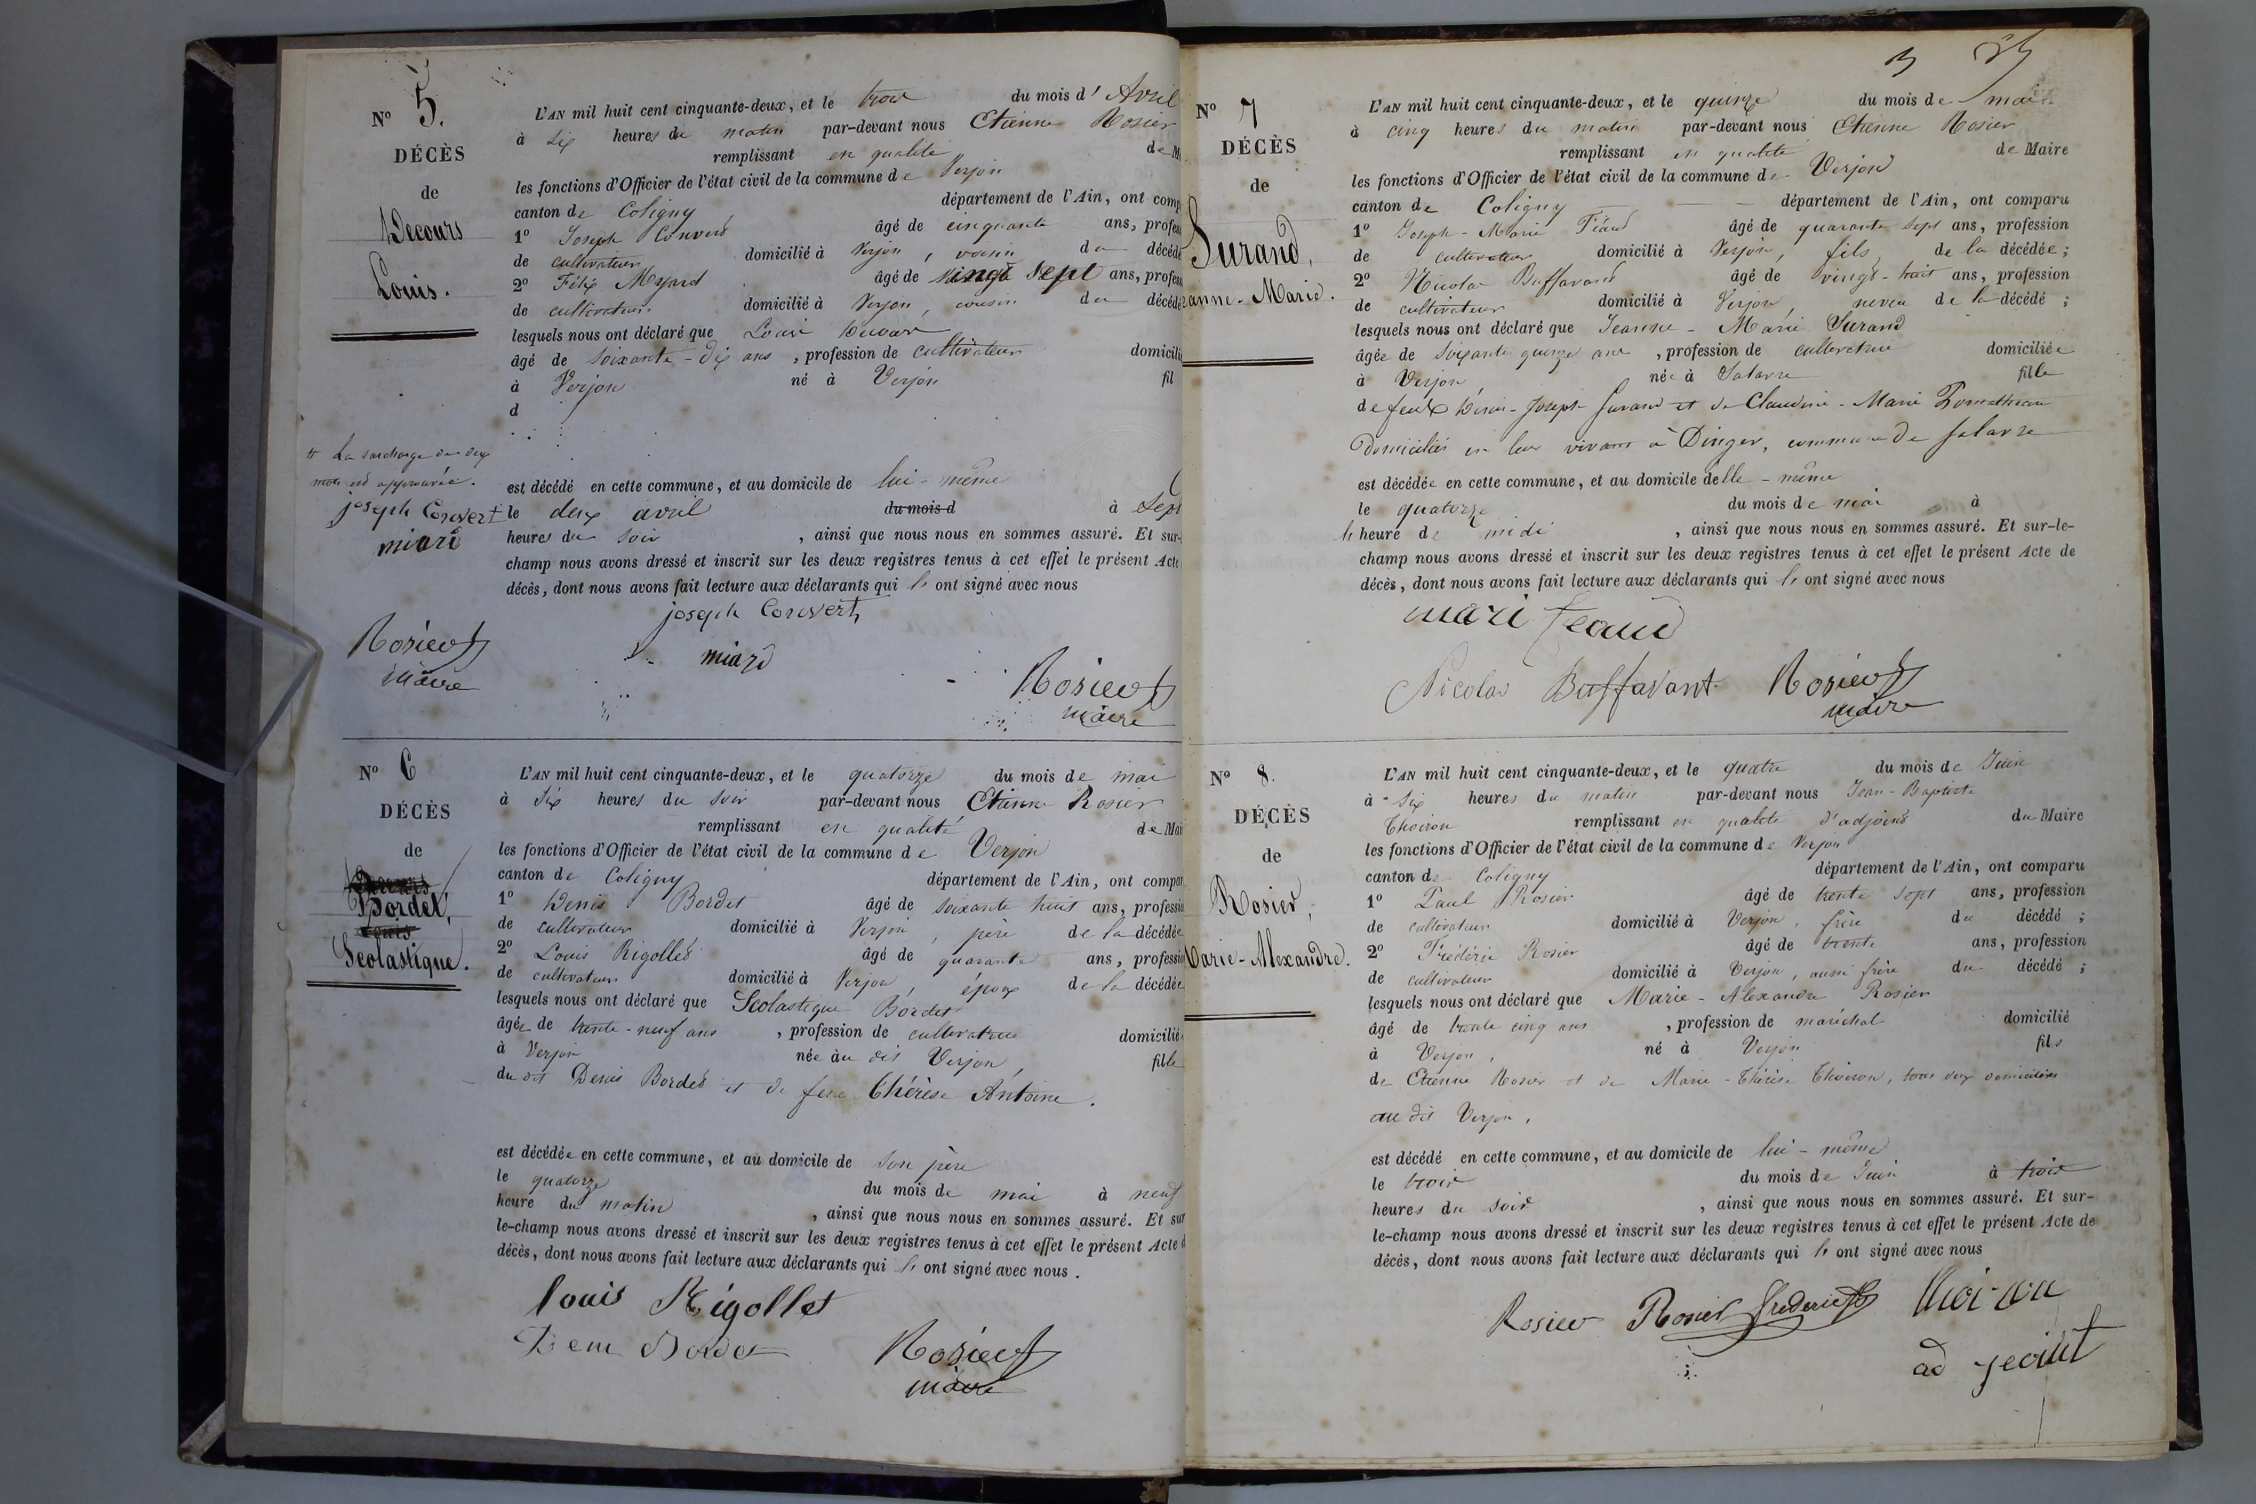 Nº 5.
DÉCÈS
de
Decours
Louis.
L'AN mil huit cent cinquante-deux, et le trois du mois d' Avril
à six heures du matin par-devant nous Etienne Rosier
remplissant en qualité de M
les fonctions d'Officier de l'état civil de la commune de Verjon
canton de Coligny département de l'Ain, ont comp
1º Joseph Convers âgé de cinquante ans, profess
de cultivateur domicilié à Verjon, voisin du décédé
2º Félix Myard âgé de vingt sept ans, profess
de cultivateur domicilié à Verjon, cousin du décédé
lesquels nous ont déclaré que Louis
âgé de soixante-dix ans, profession de cultivateur domicili
à Verjon né à Verjon fil
d
La surcharge de deux
mots est approuvée.
joseph Convert
miard
Rosier
maire
est décédé en cette commune, et au domicile de lui-même
le deux avril du mois d à sept
heures du soir, ainsi que nous nous en sommes assuré. Et sur-
champ nous avons dressé et inscrit sur les deux registres tenus à cet effet le présent Acte
décès, dont nous avons fait lecture aux déclarants qui ont signé avec nous
joseph Convert
miard
Rosier
maire
Nº 6
DÉCÈS
de
Bordet,
Scolastique.
L'AN mil huit cent cinquante-deux, et le quatorze du mois de mai
à six heures du soir par-devant nous Etienne Rosier
remplissant en qualité de Mai
les fonctions d'Officier de l'état civil de la commune de Verjon
canton de Coligny département de l'Ain, ont compar
1º Denis Bordet âgé de soixante huit ans, professio
de cultivateur domicilié à Verjon, père de la décédée
2º Louis Rigollet âgé de quarante ans, professio
de cultivateur domicilié à Verjon, époux de la décédée
lesquels nous ont déclaré que Scolastique Bordet
âgée de trente-neuf ans, profession de cultivatrice domicilié
à Verjon née au dit Verjon, fille
du dit Denis Bordet et de feue Thérèse Antoine.
est décédée en cette commune, et au domicile de son père
le quatorze du mois de mai à neuf
heure du matin, ainsi que nous nous en sommes assuré. Et sur
le-champ nous avons dressé et inscrit sur les deux registres tenus à cet effet le présent Acte d
décès, dont nous avons fait lecture aux déclarants qui ont signé avec nous.
louis Rigollet
Bordet
Rosier
maire
Nº 7
DÉCÈS
de
Surand,
anne-Marie.
L'AN mil huit cent cinquante-deux, et le quinze du mois de mai
à cinq heures du matin par-devant nous Etienne Rosier
remplissant en qualité de Maire
les fonctions d'Officier de l'état civil de la commune de Verjon
canton de Coligny département de l'Ain, ont comparu
1º Joseph-Marie Féaud âgé de quarante sept ans, profession
de cultivateur domicilié à Verjon, fils de la décédée;
2º Nicolas Buffavand âgé de vingt-huit ans, profession
de cultivateur domicilié à Verjon, neveu de la décédé;
lesquels nous ont déclaré que Jeanne-Marie Surand
âgée de soixante quinze ans, profession de cultivatrice domiciliée
à Verjon, née à Salavre fille
de feux Denis-Joseph Surand et de Claudine-Marie
domiciliés en leur vivant à Dingier, commune de Salavre
est décédée en cette commune, et au domicile delle-même
le quatorze du mois de mai à
heure de midi, ainsi que nous nous en sommes assuré. Et sur-le-
champ nous avons dressé et inscrit sur les deux registres tenus à cet effet le présent Acte de
décès, dont nous avons fait lecture aux déclarants qui ont signé avec nous
mari feaud
Nicolas Buffavant Rosier
maire
Nº 8.
DÉCÈS
de
Rosier,
Marie-Alexandre.
L'AN mil huit cent cinquante-deux, et le quatre du mois de Juin
à six heures du matin par-devant nous Jean-Baptiste
Thoiron remplissant en qualité d'adjoint du Maire
les fonctions d'Officier de l'état civil de la commune de Verjon
canton de Coligny département de l'Ain, ont comparu
1º Paul Rosier âgé de trente sept ans, profession
de cultivateur domicilié à Verjon, frère du décédé;
2º Frédéric Rosier âgé de trente ans, profession
de cultivateur domicilié à Verjon, aussi frère du décédé;
lesquels nous ont déclaré que Marie-Alexandre Rosier
âgé de trente cinq ans, profession de maréchal domicilié
à Verjon, né à Verjon fils
de Etienne Rosier et de Marie-Thérèse Thoiron, tous deux domiciliés
au dit Verjon,
est décédé en cette commune, et au domicile de lui-même
le trois du mois de Juin à trois
heures du soir, ainsi que nous nous en sommes assuré. Et sur-
le-champ nous avons dressé et inscrit sur les deux registres tenus à cet effet le présent Acte de
décès, dont nous avons fait lecture aux déclarants qui ont signé avec nous
Rosier Rosier frederic thoiron
ad jeoint